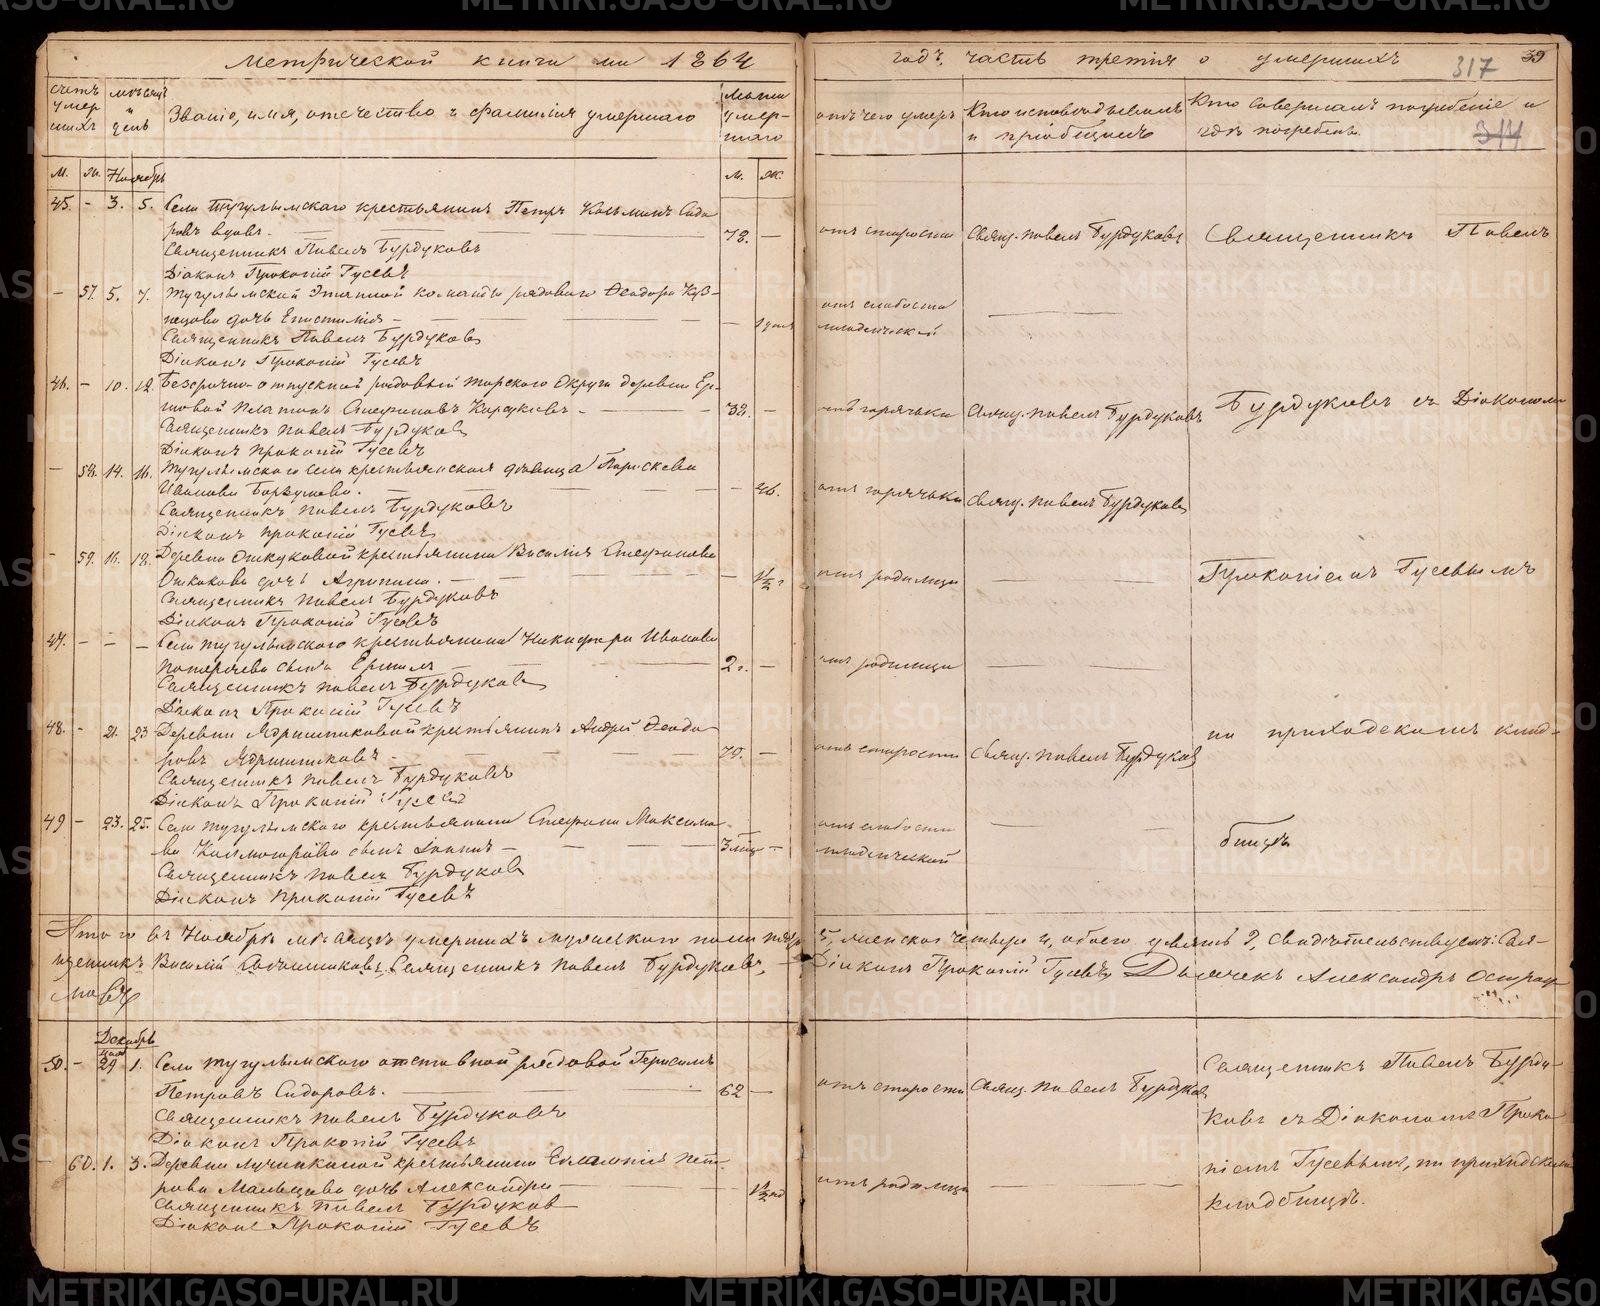 Метрической книги на 1864
годъ, часть третія о умершихъ
317
39
314
счетъ умер шихъ
мѣсяцъ и день
Званіе, имя, отечество и фамилія умершаго
Лѣта умер-шаго
отъ чего умеръ
Кто исповѣдывалъ и пріобщалъ
Кто совершалъ погребеніе и гдѣ погребенъ
м. ж. Ноябрь м. ж.
45. – 3. 5. Села Тугулымскаго крестьянинъ Петръ Козьминъ Сидо
ровъ вдовъ. 78. – отъ старости Свящ. Павелъ Бурдуковъ Священникъ Павелъ
Священникъ Павелъ Бурдуковъ
Діаконъ Прокопій Гусевъ
– 57. 5. 7. Тугулымской Этапной команды рядоваго Ѳеодора Куз-
нецова дочь Епистимія – – отъ слабости младенческой
Священникъ Павелъ Бурдуковъ
Діаконъ Прокопій Гусевъ
46. – 10. 12. Безсрочно-отпускной рядовый Тарскаго Округа деревни
Платонъ Стефановъ – 39. – отъ горячьки Свящ. Павелъ Бурдуковъ Бурдуковъ съ Діакономъ
Священникъ Павелъ Бурдуковъ
Діаконъ Прокопій Гусевъ
– 58. 14. 16. Тугулымскаго села крестьянская дѣвица Параскева
Иванова – 46. отъ горячьки Свящ. Павелъ Бурдуковъ
Священникъ Павелъ Бурдуковъ
Діаконъ Прокопій Гусевъ
– 59. 16. 18. Деревни крестьянина Василія Стефанова
дочь Агрипина. – 1½ г. отъ родимца Прокопіемъ Гусевымъ
Священникъ Павелъ Бурдуковъ
Діаконъ Прокопій Гусевъ
47. – – – Села Тугулымскаго крестьянина Никифора Иванова
сынъ Ермилъ – 2 г. – отъ родимца
Священникъ Павелъ Бурдуковъ
Діаконъ Прокопій Гусевъ
48. – 21. 23. Деревни Ядрышниковой крестьянинъ Андрей Ѳеодо
ровъ Ядрышниковъ. 70. – отъ старости Свящ. Павелъ Бурдуковъ на приходскомъ клад-
Священникъ Павелъ Бурдуковъ
Діаконъ Прокопій Гусевъ
49 – 23. 25. Села Тугулымскаго крестьянина Стефана Максимо-
ва сынъ Іоаннъ – 3 мѣс. – отъ слабости младенческой бищѣ
Священникъ Павелъ Бурдуковъ
Діаконъ Прокопій Гусевъ
Итого въ Ноябрѣ мѣсяцѣ умершихъ мужескаго пола пять 5, женскаго четыре 4, обоего девять 9, свидѣтельствуемъ: Свя-
щенникъ Василій Священникъ Павелъ Бурдуковъ, Діаконъ Прокопій Гусевъ, Дьячекъ Александръ
Декабрь
50. – 29 1. Села Тугулымскаго отставной рядовой Герасимъ Священникъ Павелъ Бурду-
Петровъ Сидоровъ. 62 – отъ старости Свящ. Павелъ Бурдуковъ
Священникъ Павелъ Бурдуковъ ковъ съ Діакономъ Проко
Діаконъ Прокопій Гусевъ
– 60. 1. 3. Деревни Лучинкиной крестьянина Евлампія Пет- піемъ Гусевымъ, на приходскомъ
рова Мальцова дочь Александра – 1½ год отъ родимца
Священникъ Павелъ Бурдуковъ кладбищѣ.
Діаконъ Прокопій Гусевъ
METRIKI.GASO-URAL.RU